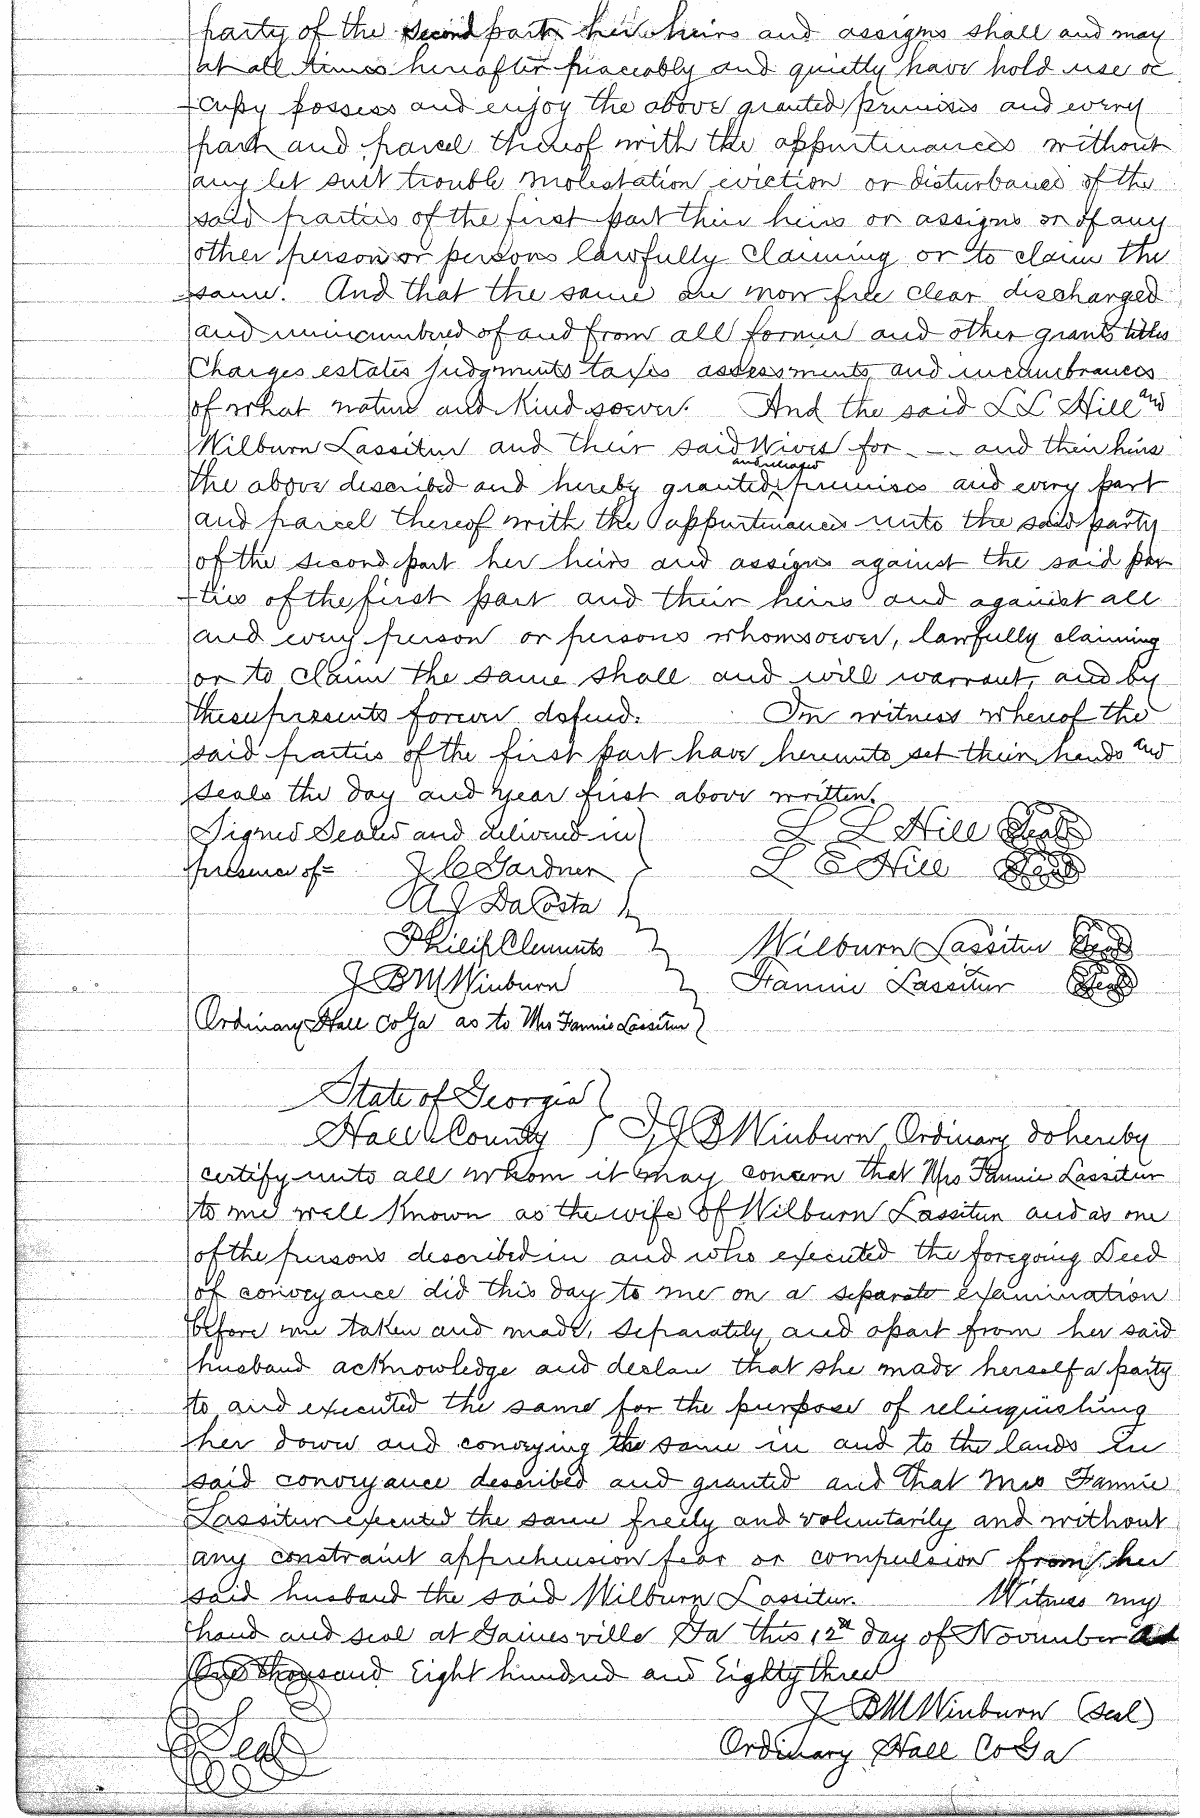 party of the second part her heirs and assigns shall and may
at all times hereafter peaceably and quietly have hold use oc
-cupy possess and enjoy the above granted premises and every
part and parcel thereof with the appurtenances without
any let suit trouble molestation eviction or disturbance of the
said parties of the first part their heirs or assigns or of any
other person or persons lawfully claiming or to claim the
same. And that the same are now free clear discharged
and unincumbered of and from all former and other grants titles
Charges estates judgments taxes assessments and incumbrances
of what nature and Kind soever. And the said L L Hill and
Wilburn Lassiter and their said Wives for - - - and their heirs
the above described and hereby granted and released premises and every part
and parcel thereof with the appurtenances unto the said party
of the second part her heirs and assigns against the said par
-ties of the first part and their heirs and against all
and every person or persons whomsoever, lawfully claiming
or to claim the same shall and will warrant, and by
these presents forever defend. In witness whereof the
said parties of the first part have hereunto set their hands and
seals the day and year first above written.
Signed Sealed and delivered in } L L Hill Seal
presence of= J C Gardner } L E Hill Seal
A J DaCosta }
Philip Clements } Wilburn Lassiter Seal
J B M Winburn } Fannie Lassiter Seal
Ordinary Hall Co Ga as to Mrs Fannie Lassiter }
State of Georgia }
Hall County } I, J B Winburn Ordinary do hereby
certify unto all whom it may concern that Mrs Fannie Lassiter
to me well Known as the wife of Wilburn Lassiter and as one
of the persons described in and who executed the foregoing Deed
of conveyance did this day to me on a separate examination
before me taken and made, separately and apart from her said
husband acknowledge and declare that she made herself a party
to and executed the same for the purpose of relinquishing
her dower and conveying the same in and to the lands in
said conveyance described and granted and that Mrs Fannie
Lassiter executed the same freely and voluntarily and without
any constraint apprehension fear or compulsion from her
said husband the said Wilburn Lassiter. Witness my
hand and seal at Gainesville Ga this 12th day of November AD
One thousand Eight hundred and Eighty three
J B M Winburn (Seal)
Seal Ordinary Hall Co Ga